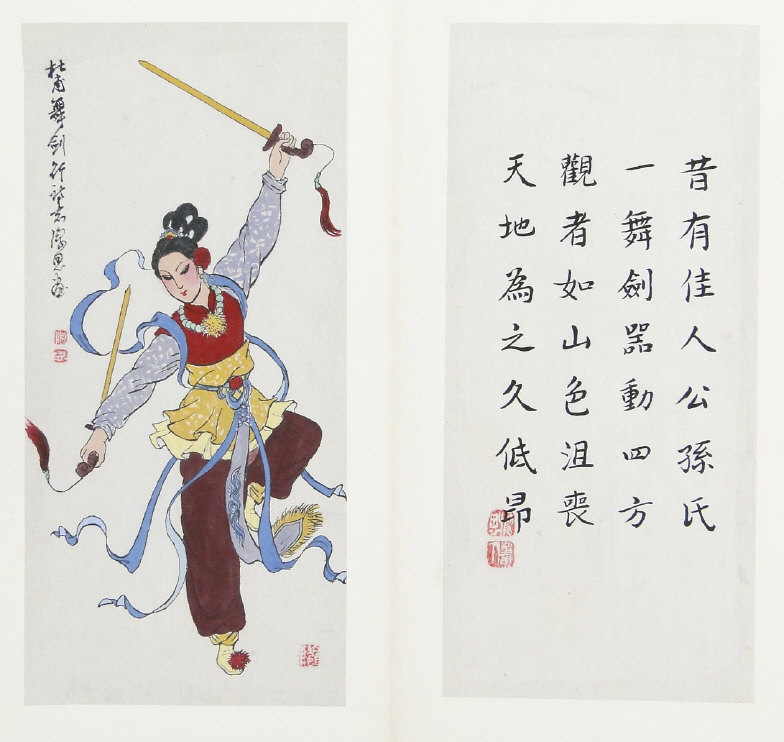 昔有佳人公孫氏
一舞劍器動四方
觀者如山色沮喪
天地為之久低昂
杜甫舞劍行